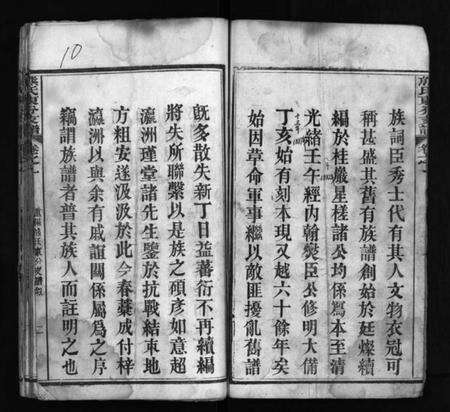 族詞臣秀士代有其人文物衣冠可
稱甚盛其舊有族譜創始於廷燦續
編於桂巖星槎諸公均係寫本至清
光緒壬午經內翰爕臣公修明大備
丁亥始有刻本現又越六十餘年矣
始因革命軍事繼以敵匪擾亂舊譜
10
既多散失新丁日益蕃衍不再續編
將失所聯繫以是族之碩彥如意超
瀛洲瑾堂諸先生鑒於抗戰結束地
方粗安遂汲汲於此今春藁成付梓
瀛洲以與余有戚誼關係屬為之序
竊謂族譜者普其族人而註明之也